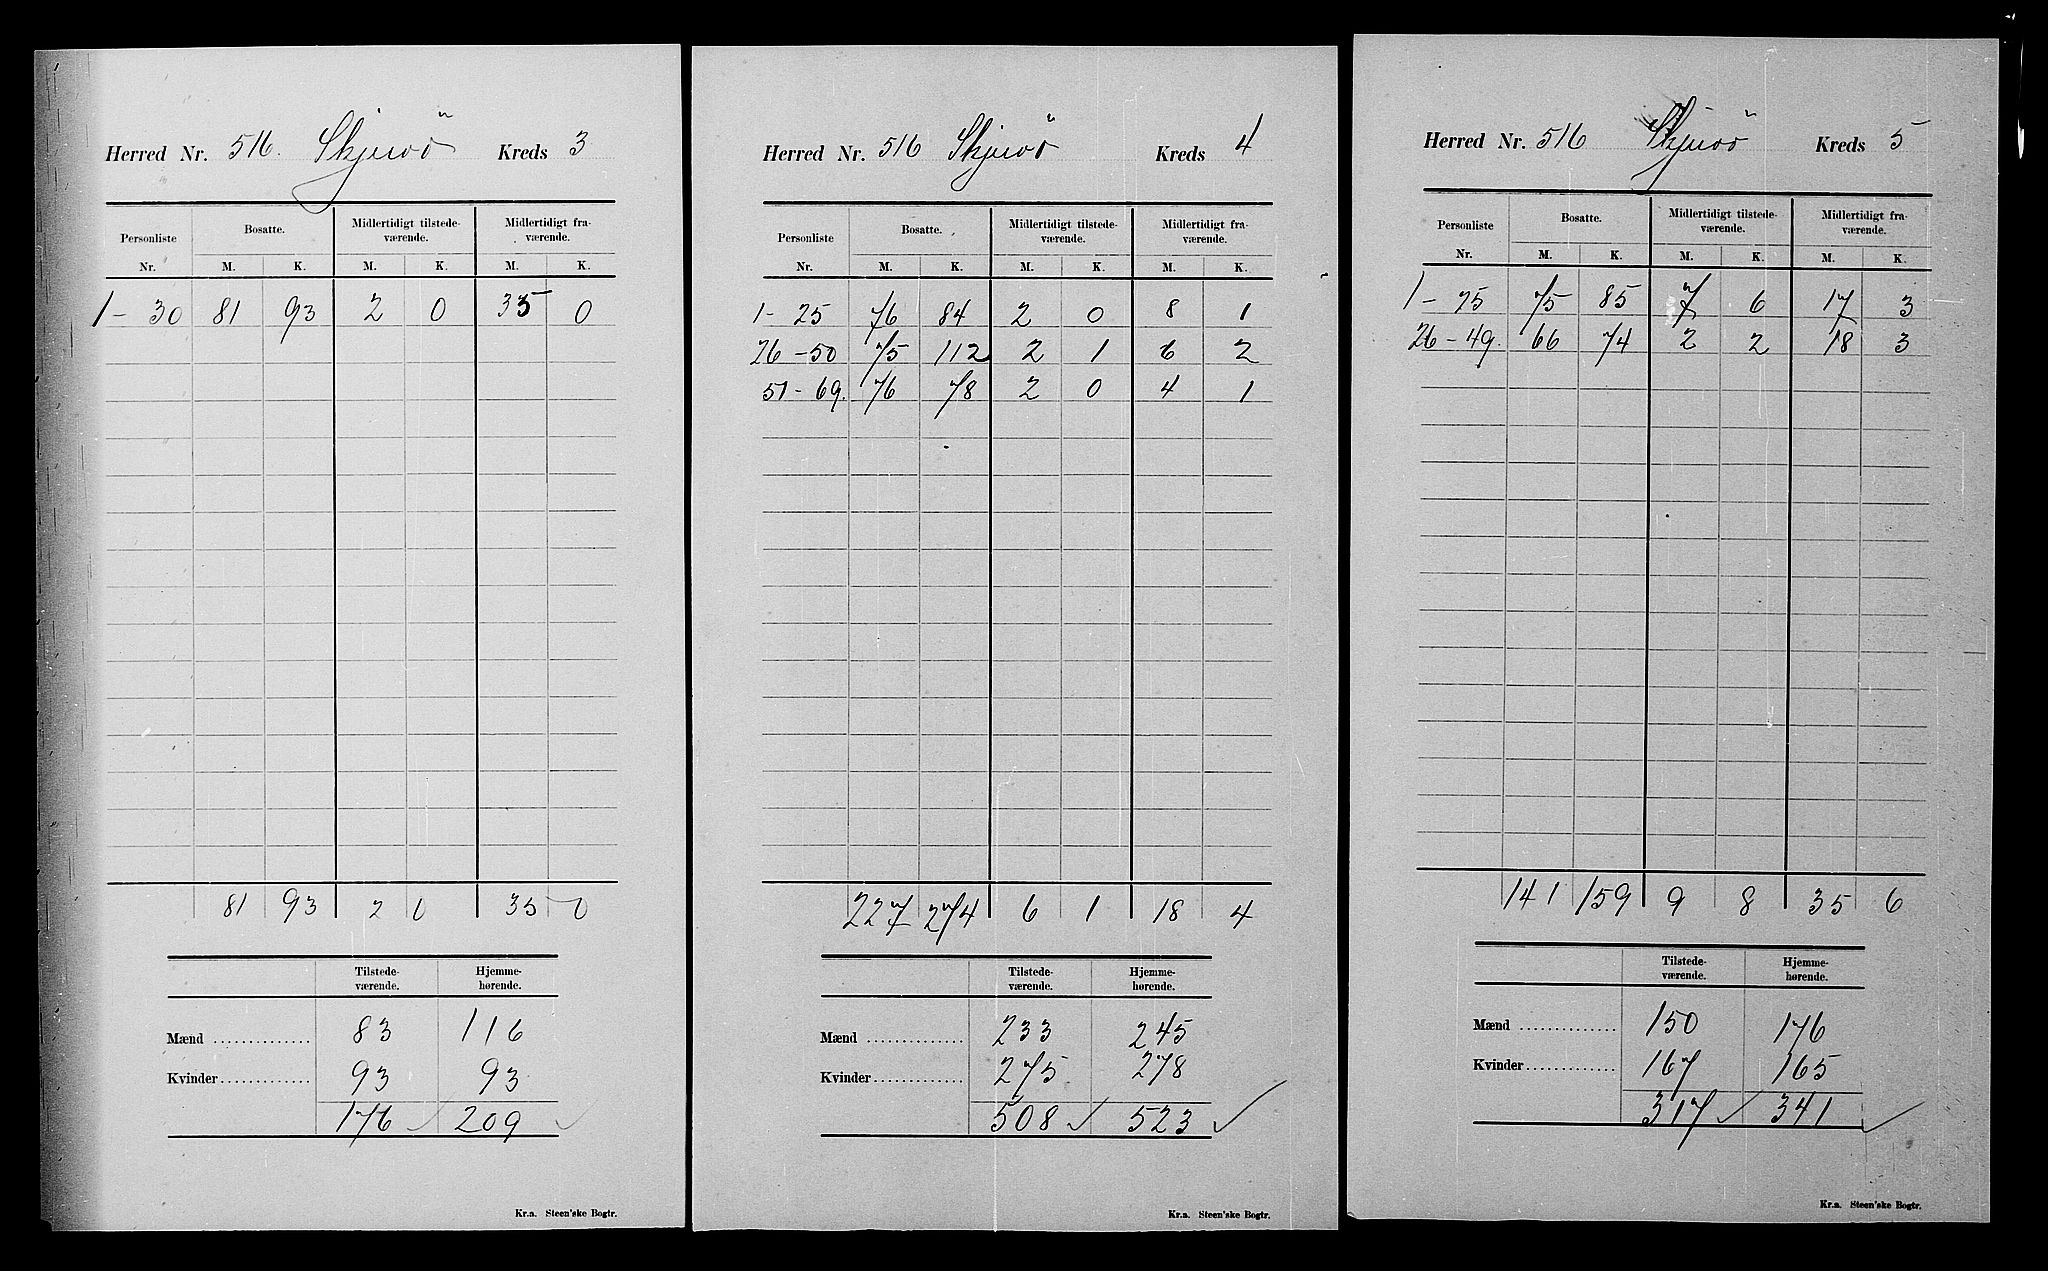 Herred Nr. 516. Skjervö Kreds 3
Personliste Bosatte. Midlertidigt tilstede- Midlertidigt fra-
værende. værende.
Nr. M. K. M. K. M. K.
1 - 30 81 93 2 0 35 0
81 93 2 0 35 0
Tilstede- Hjemme-
værende. hørende.
Mænd 83 116
Kvinder 93 93
176 209
Kr.a. Steen'ske Bogtr.
Herred Nr. 516 Skjervö Kreds 4
Personliste Bosatte. Midlertidigt tilstede- Midlertidigt fra-
værende. værende.
Nr. M. K. M. K. M. K.
1 - 25 76 84 2 0 8 1
26 - 50 75 112 2 1 6 2
51 - 69. 76 78 2 0 4 1
227 274 6 1 18 4
Tilstede- Hjemme-
værende. hørende.
Mænd 233 245
Kvinder 275 278
508 523
Kr.a. Steen'ske Bogtr.
Herred Nr. 516 Skjervö Kreds 5
Personliste Bosatte. Midlertidigt tilstede- Midlertidigt fra-
værende. værende.
Nr. M. K. M. K. M. K.
1 - 25 75 85 7 6 17 3
26 - 49. 66 74 2 2 18 3
141 159 9 8 35 6
Tilstede- Hjemme-
værende. hørende.
Mænd 150 176
Kvinder 167 165
317 341
Kr.a. Steen'ske Bogtr.